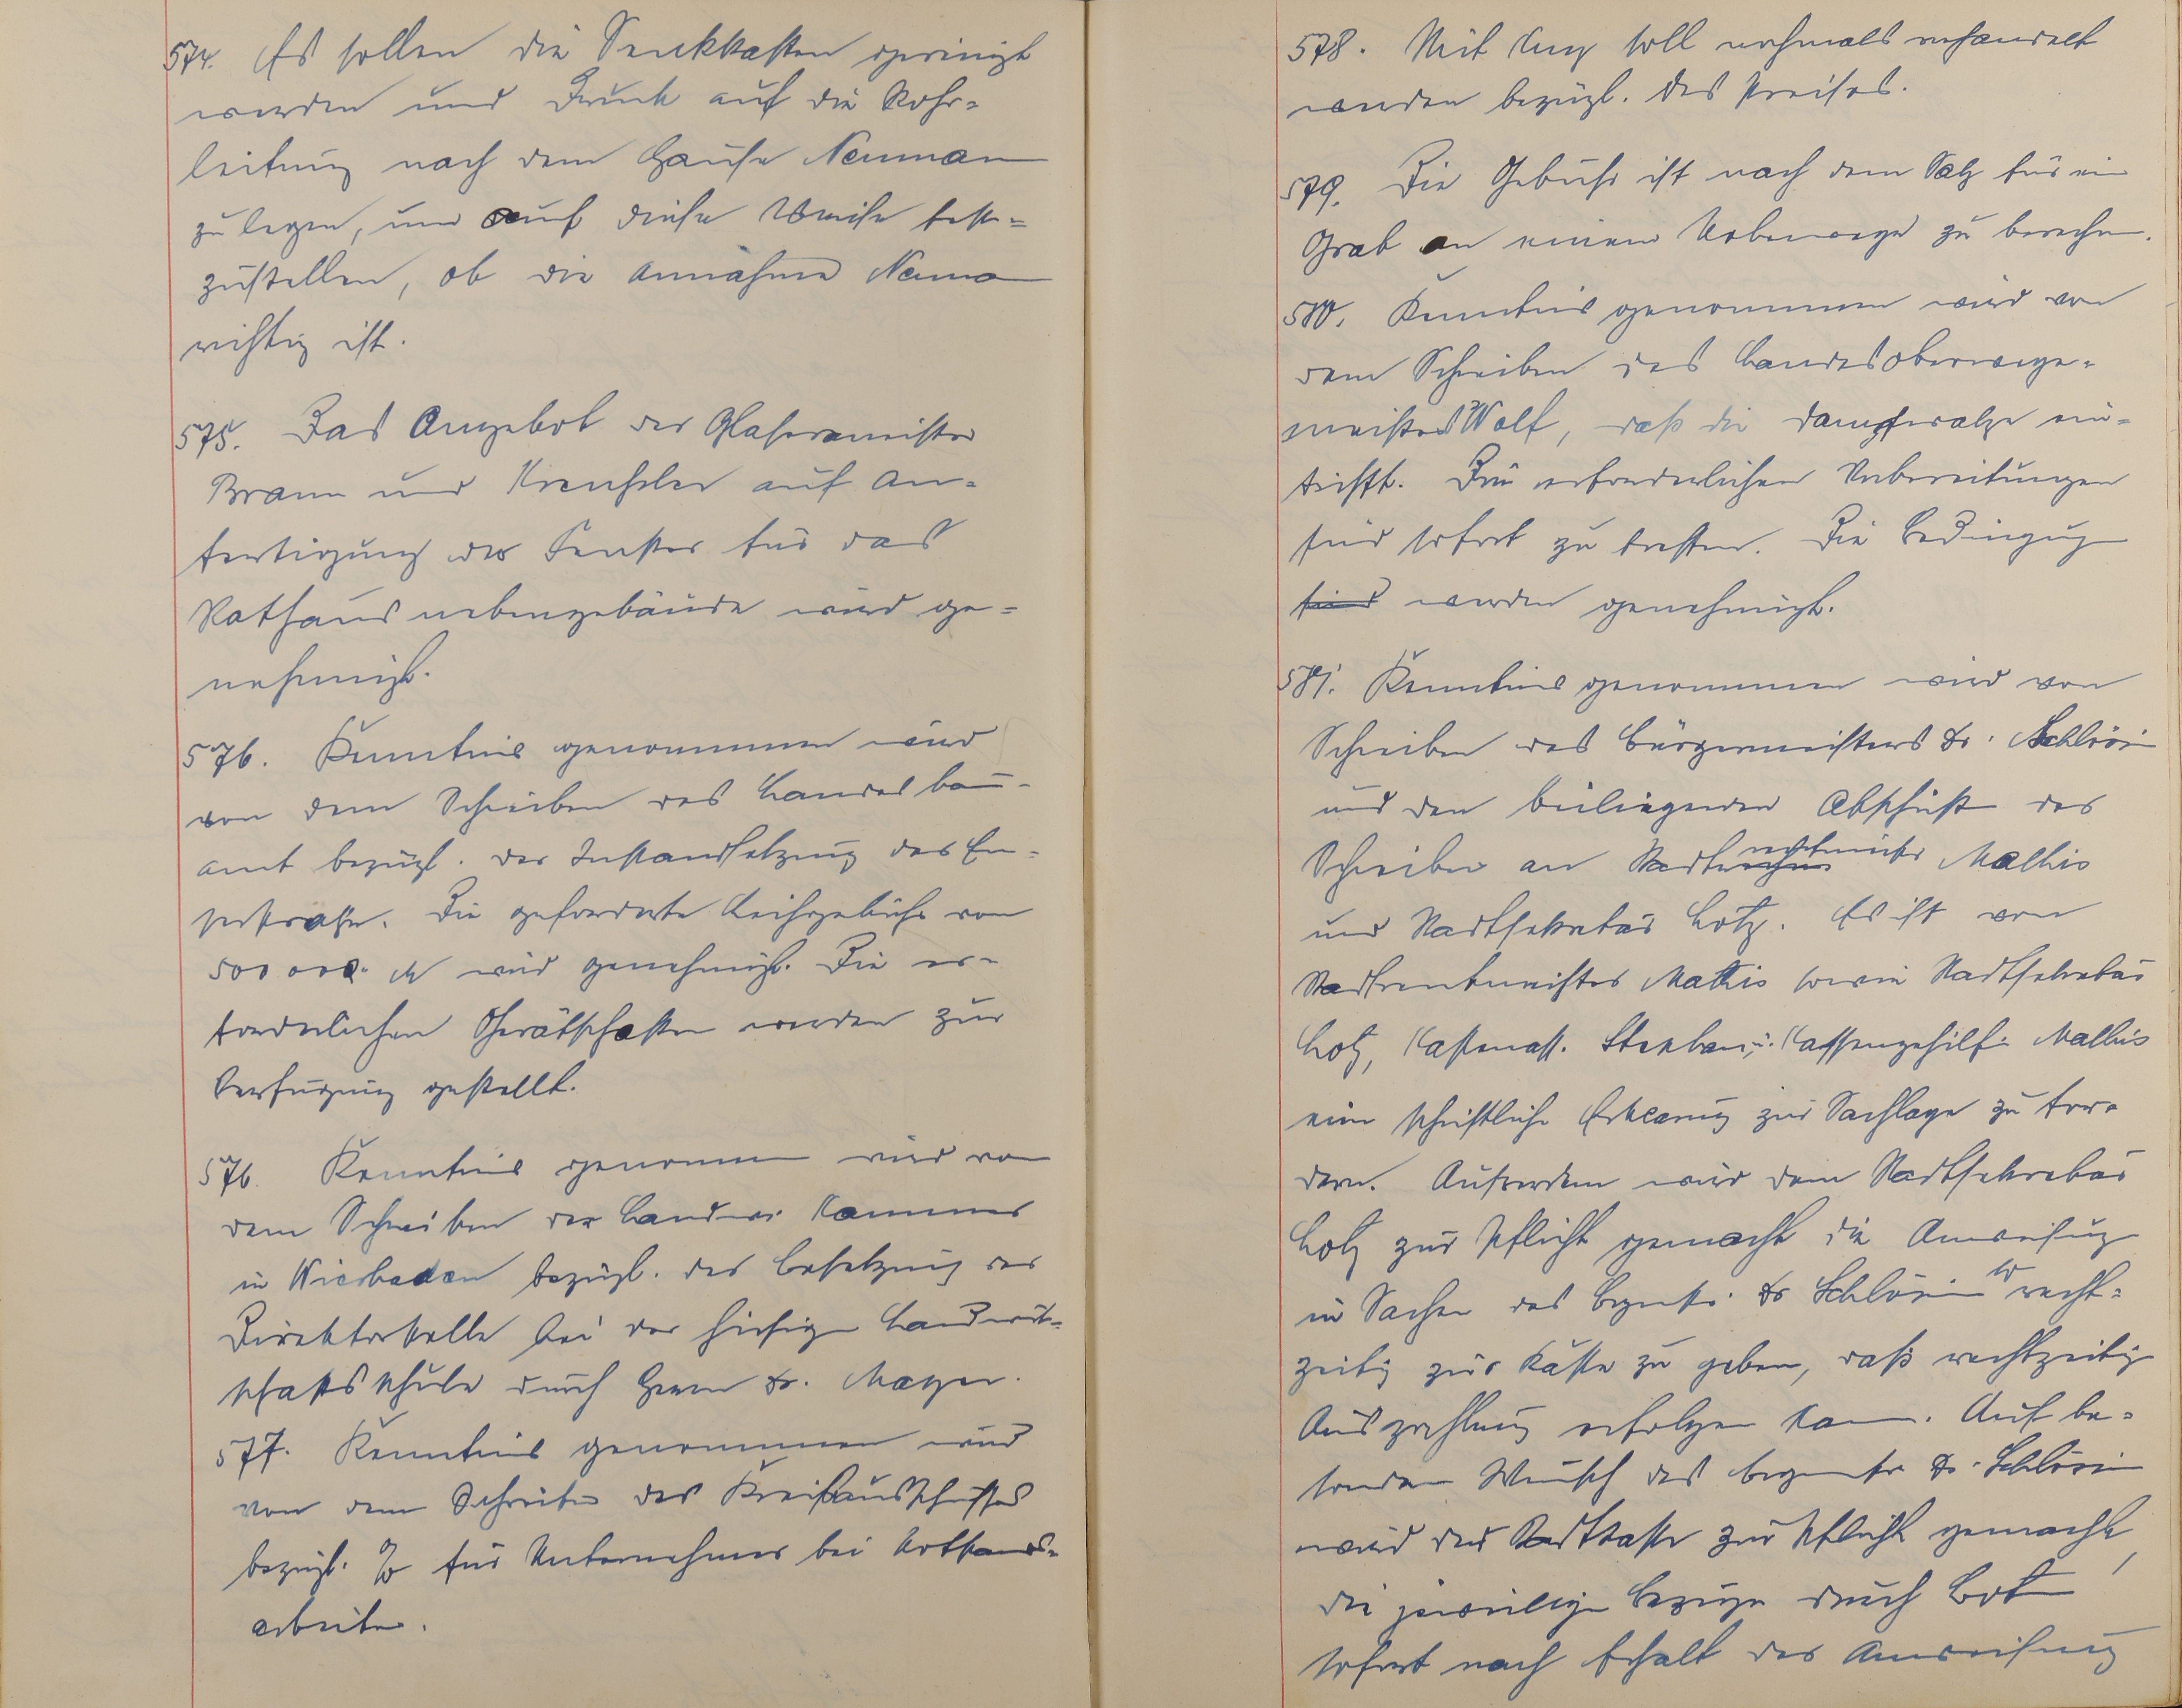 574. Es sollen die Senkkasten gereinigt
werden und Druck auf die Rohr-
leitung nach dem Hause Neuman
zu legen, um auf diese Weise fest-
zustellen, ob die Annahme Neuma
richtig ist.
575. Das Angebot der Glasermeister
Braun und Kreuseler auf An-
fertigung der Fenster für das
Rathausnebengebäude wird ge-
nehmigt.
576. Kenntnis genommen wird
von dem Schreiben des Landesbau-
amt bezügl. der Instandsetzung der Em-
serstraße. Die geforderte Leihgebühr von
500 000. M wird genehmigt. Die er-
forderlichen Gerätschaften werden zur
Verfügung gestellt.
576. Kenntnis genommen wird von
dem Schreiben der Landw. Kammer
in Wiesbaden bezügl. der Besetzung der
Direktorstelle bei der hiesigen Landwirt-
schaftsschule durch Herrn Dr. Mayer.
577. Kenntnis genommen wird
von dem Schreiben des Kreisausschusses
bezügl. % für Unternehmer bei Notstands-
arbeiten.
578. Mit Luy soll nochmals verhandelt
werden bezügl. des Preises.
579. Die Gebühr ist nach dem Satz für ein
Grab an einem Nebenwege zu berechn.
580. Kenntnis genommen wird von
dem Schreiben des Landesoberwege-
meisters Wolf, daß die Dampfwalze ein-
trifft. Die erforderlichen Vorbereitungen
sind sofort zu treffen. Die Bedingung
sind werden genehmigt.
581. Kenntnis genommen wird von
Schreiben des Bürgermeisters Dr. Schlösin
und den beiliegenden Abschrift des
Schreiben an Stadtrentmeister Mathis
und Stadtsekretär Lotz. Es ist von
Stadtrentmeister Mathis sowie Stadtsekretär
Lotz, Kassenass. u. Kassengehilfe Mathis
eine schriftliche Erklärung zur Sachlage zu for-
dern. Außerdem wird dem Stadtsekretär
Lotz zur Pflicht gemacht die Anweisung
in Sachen des Bgmstr. Dr Schlösin so recht-
zeitig zur Kasse zu geben, daß rechtzeitig
Auszahlung erfolgen kann. Auf be-
sonderen Wunsch des Bgmstr Dr. Schlösin
wird der Stadtkasse zur Pflicht gemacht,
die jeweiligen Bezüge durch Bot
sofort nach Erhalt der Anweisung